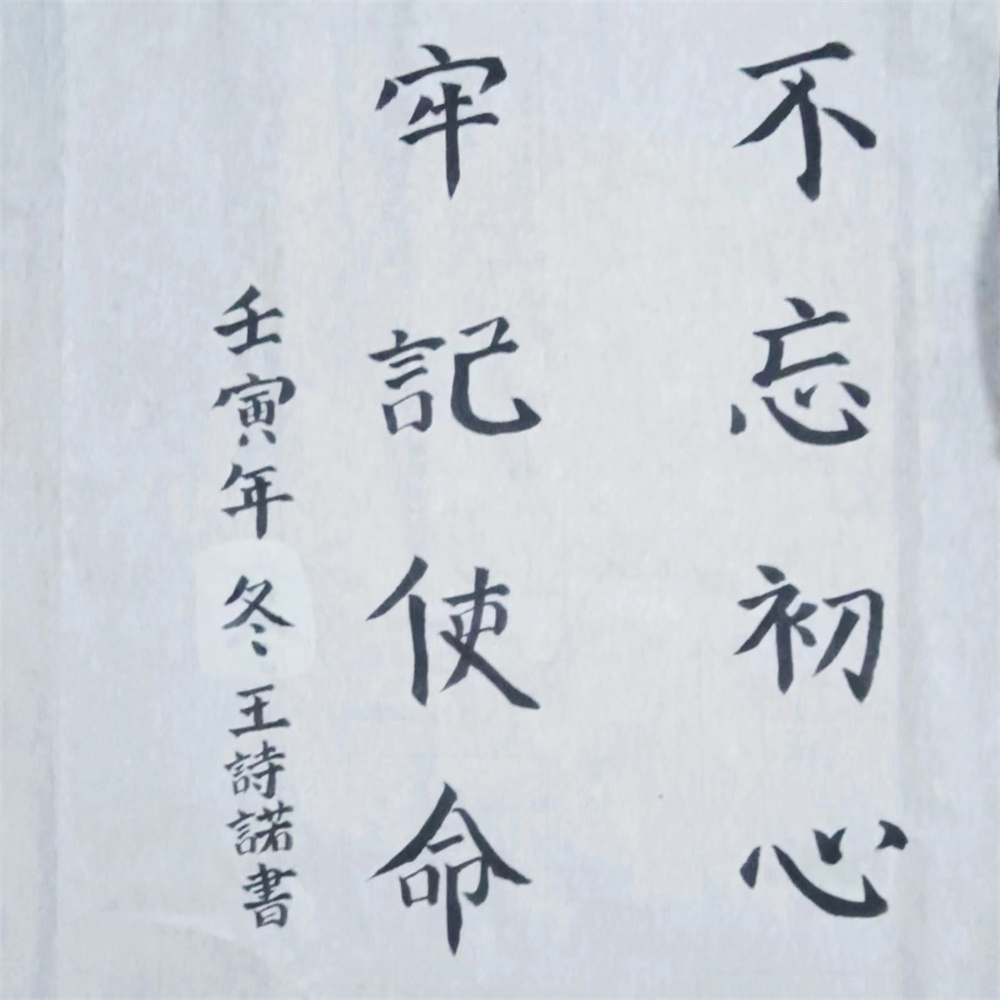 不忘初心
牢記使命
壬寅年冬王詩諾書